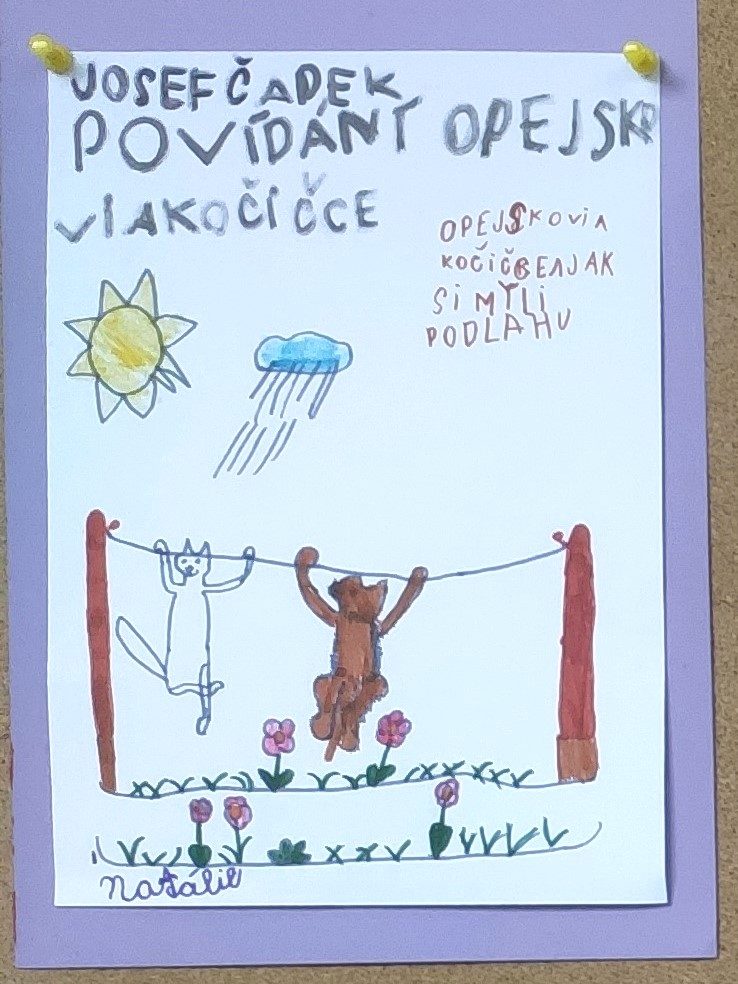 JOSEF ČAPEK
POVÍDÁNÍ OPEJSK
VIAKOČIČCE
OPEJSKOVIA
KOČIČCEAJAK
SI MYLI
PODLAHU
Natálie